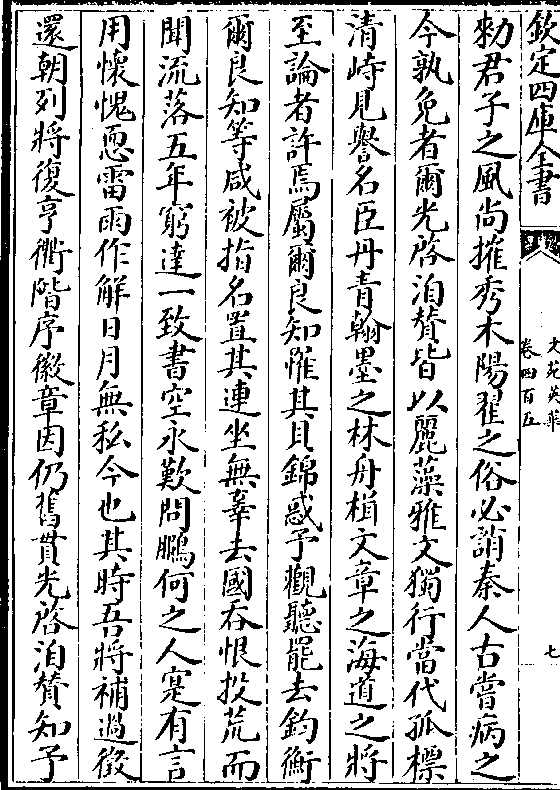 欽定四庫全書
文苑英華
卷四百五
七
勑君子之風尚摧秀木陽翟之俗必誚秦人古嘗病之
今孰免者爾光啓洎贊皆以麗藻雅文獨行當代孤標
清峙見譽名臣丹青翰墨之林舟楫文章之海道之將
至論者許焉屬爾良知惟其貝錦惑予觀聽罷去鈞衡
爾良知等咸被指名置其連坐無辜去國吞恨投荒而
聞流落五年窮達一致書空永歎問鵩何之人寔有言
用懷愧恧雷雨作解日月無私今也其時吾將補過徵
還朝列將復亨衢階序徽章因仍舊貫光啓洎贊知予